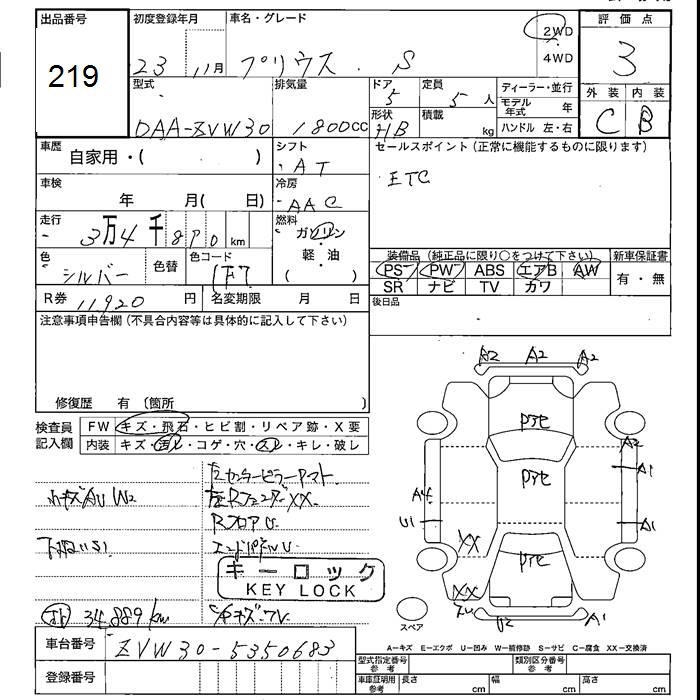 出品番号
219
初度登録年月
23 11月
車名・グレード
プリウス S
2WD
4WD
評価点
3
外装 内装
C B
型式
DAA-ZVW30
排気量
1800cc
ドア
5
形状
HB
定員
5人
積載
kg
ディーラー・並行
モデル年式 年
ハンドル 左・右
車歴
自家用・( )
シフト
・AT
車検
年 月( 日)
冷房
・AAC
走行
3万4千890km
燃料
ガソリン
軽・油
( )
色
シルバー
色替
色コード
1F7
R券 11920円
名変期限 月 日
セールスポイント(正常に機能するものに限ります)
・ETC
装備品(純正品に限り○をつけて下さい)
PS PW ABS エアB AW
SR ナビ TV カワ
新車保証書
有・無
後日品
注意事項申告欄(不具合内容等は具体的に記入して下さい)
修復歴 有 〔箇所 〕
検査員記入欄
FW キズ・飛石・ヒビ割・リペア跡・X要
内装 キズ・汚レ・コゲ・穴・スレ・キレ・破レ
小キズAU W2
下廻いS1
34,889km
RフロアU
エンドパネルU
キーロック
KEY LOCK
A2 A2 A2
P光
P光
P光
A2
A1
A4
U1
A1
XX
XX
U2
A1
スペア
A-キズ E-エクボ U-凹み W-補修跡 S-サビ C-腐食 XX-交換済
車台番号
ZVW30-5350683
登録番号
型式指定番号
参考
類別区分番号
参考
車庫証明用
参考
長さ cm
幅 cm
高さ cm